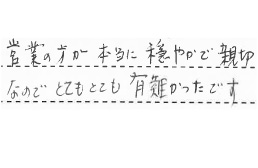 営業の方が本当に穏やかで親切
なのでとてもとても有難かったです